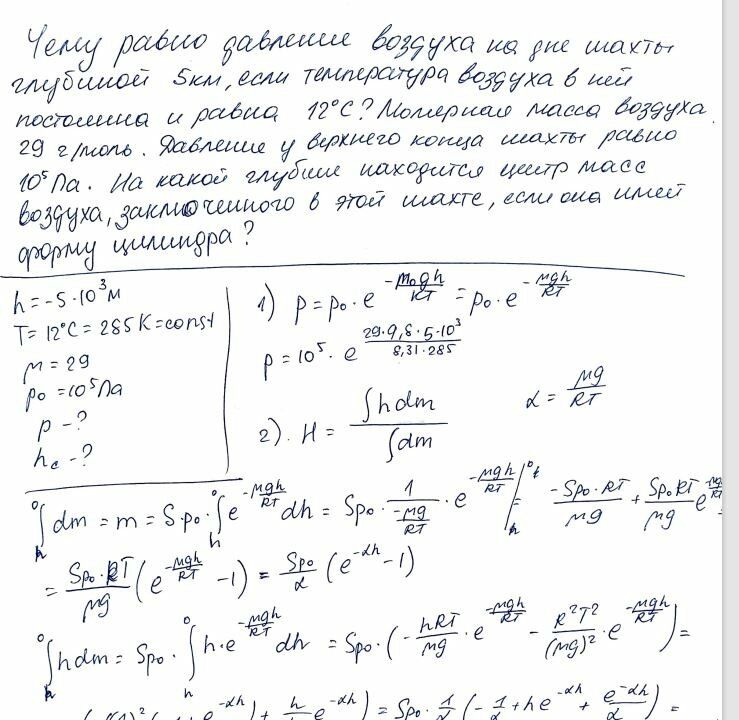 Чему равно давление воздуха на дне шахты
глубиной 5км, если температура воздуха в ней
постоянна и равна 12°С? Молярная масса воздуха
29 г/моль. Давление у верхнего конца шахты равно
10⁵Па. На какой глубине находится центр масс
воздуха, заключенного в этой шахте, если она имей
форму цилиндра?
h = -5·10³м
T = 12°C = 285K = const
μ = 29
p₀ = 10⁵Па
p - ?
h_c - ?
1) p = p₀·e^(-m₀gh/KT) = p₀·e^(-μgh/RT)
p = 10⁵·e^(29·9,8·5·10³/8,31·285)
2). H = ∫hdm/∫dm α = μg/RT
∫_h^0 dm = m = S·p₀·∫_h^0 e^(-μgh/RT) dh = Sp₀·1/(-μg/RT)·e^(-μgh/RT)|_h^0 = -Sp₀·RT/μg + Sp₀RT/μg e^(-μgh/RT) =
= Sp₀·RT/μg (e^(-μgh/RT) - 1) = Sp₀/α (e^(-αh) - 1)
∫_h^0 hdm = Sp₀·∫_h^0 h·e^(-μgh/RT) dh = Sp₀·(-hRT/μg·e^(-μgh/RT) - R²T²/(μg)²·e^(-μgh/RT)) =
e^(-αh)) + h/ e^(-αh)) = Sp₀·1/α(-1/α + he^(-αh) + e^(-αh)/α) =